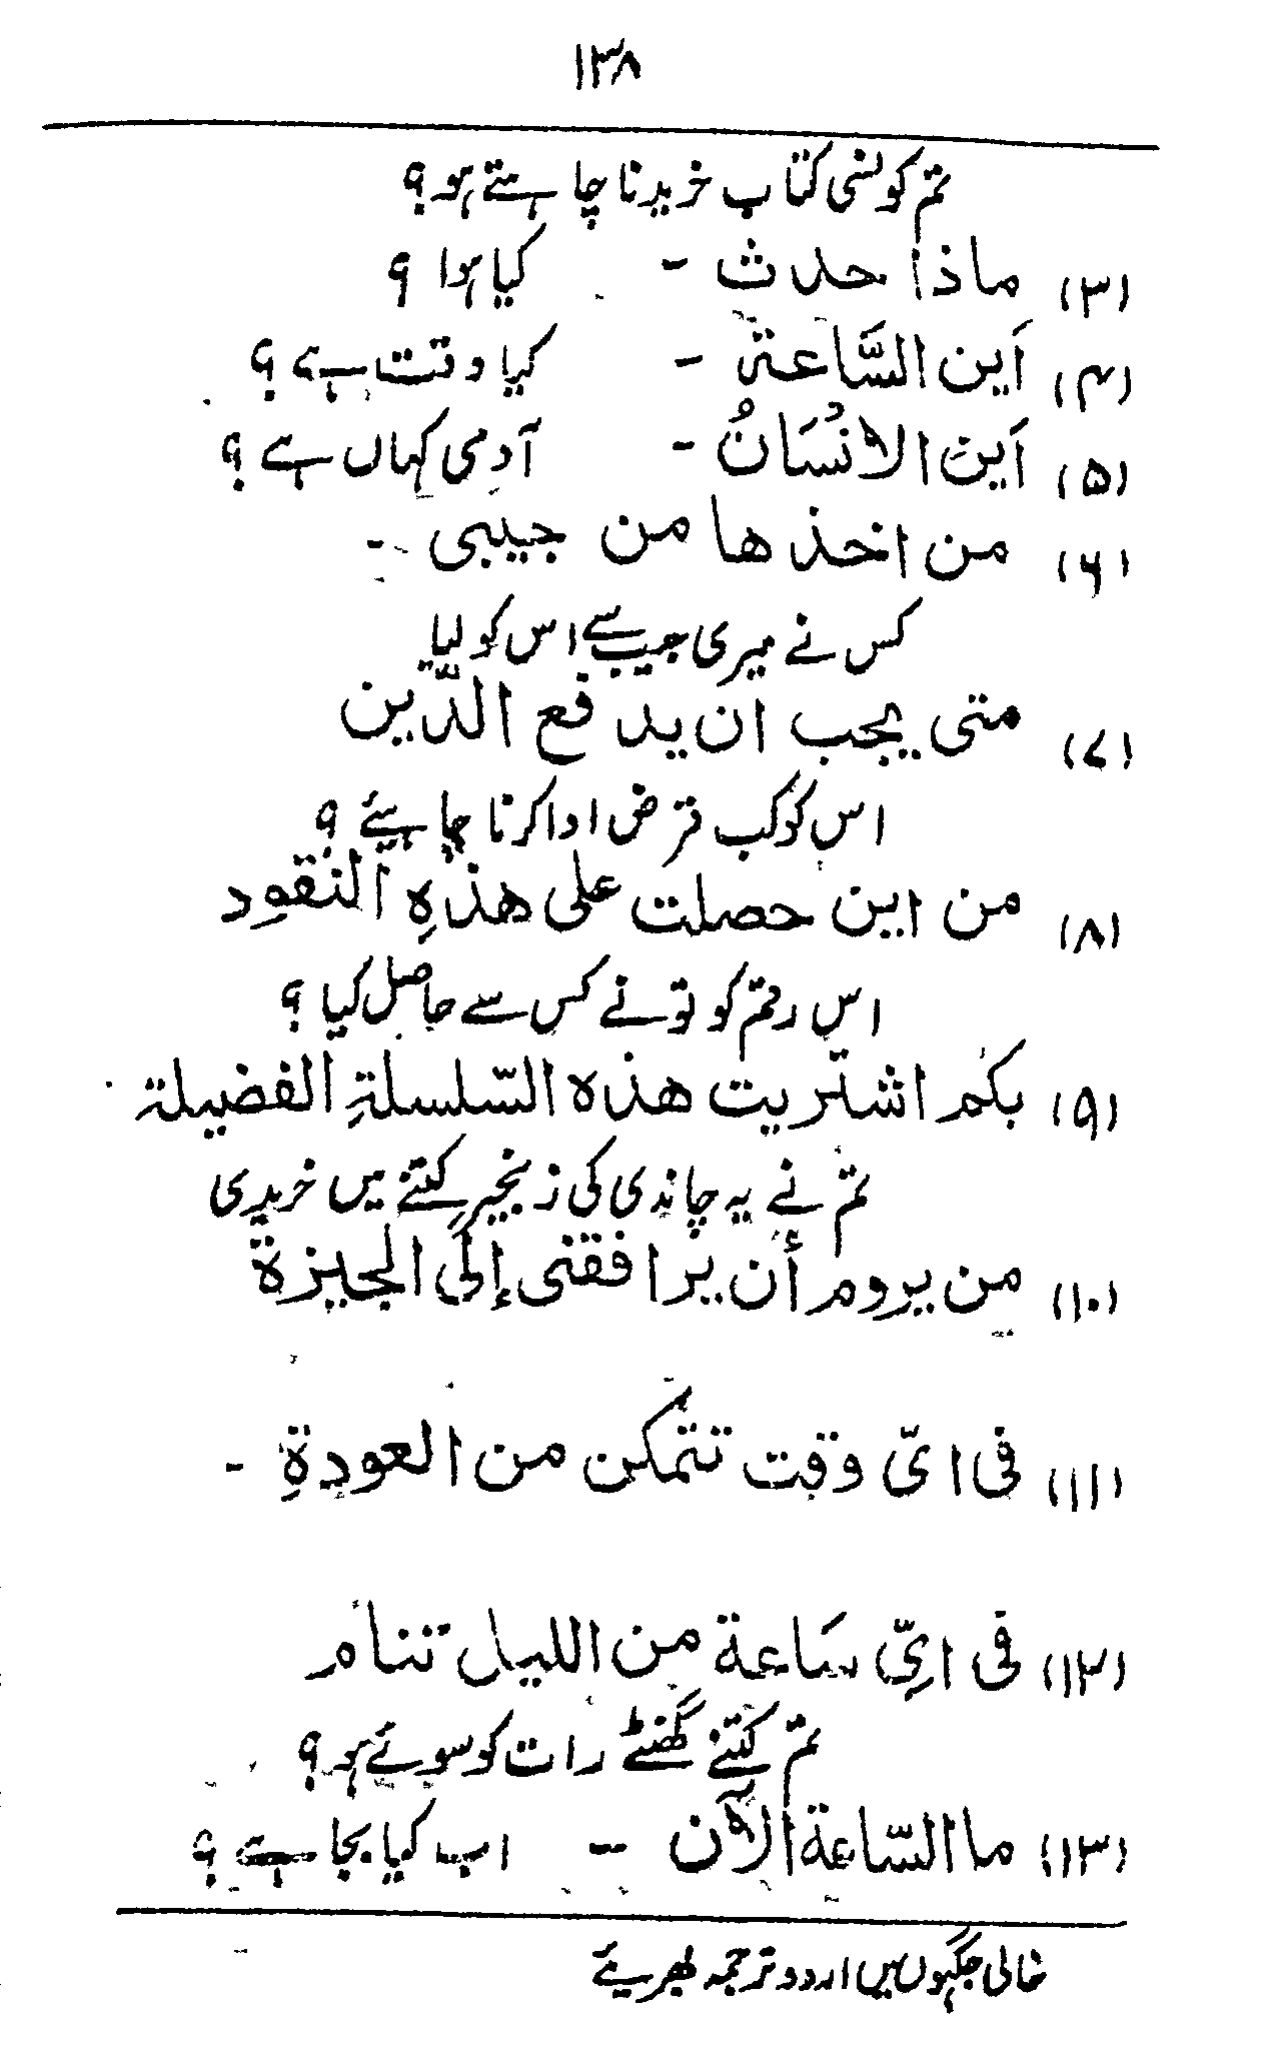 ۱۳۸
تم کونسی کتاب خریدنا چاہتے ہو؟
(۳) ماذا حدث - کیا ہوا ؟
(۴) اَین السَّاعۃ - کیا وقت ہے ؟
(۵) اَین الانْسَانُ - آدمی کہاں ہے ؟
(۶) من اخذها من جیبی -
کس نے میری جیب سے اس کو لیا
(۷) متی یجب ان یدفع الدّین
اس کو کب قرض ادا کرنا چاہئے ؟
(۸) من این حصلت علی هذهِ النّقود
اس رقم کو تو نے کس سے حاصل کیا ؟
(۹) بکم اشتریت هذه السّلسلۃِ الفضیلۃ
تم نے یہ چاندی کی زنجیر کتنے میں خریدی
(۱۰) من یروم أن یرافقنی إلی الجیزة
(۱۱) فی ایّ وقت تتمکن من العودةِ -
(۱۲) فی ایِّ سَاعة مِن اللیل تنام
تم کتنے گھنٹے رات کو سوئے ہو ؟
(۱۳) ما السّاعة الآن - اب کیا بجا ہے ؟
خالی جگہوں میں اردو ترجمہ بھریئے